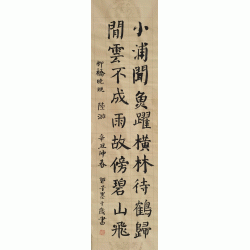 小浦聞魚躍橫林待鶴歸
閒雲不成雨故傍碧山飛
柳橋晚眺 陸游 辛丑仲春